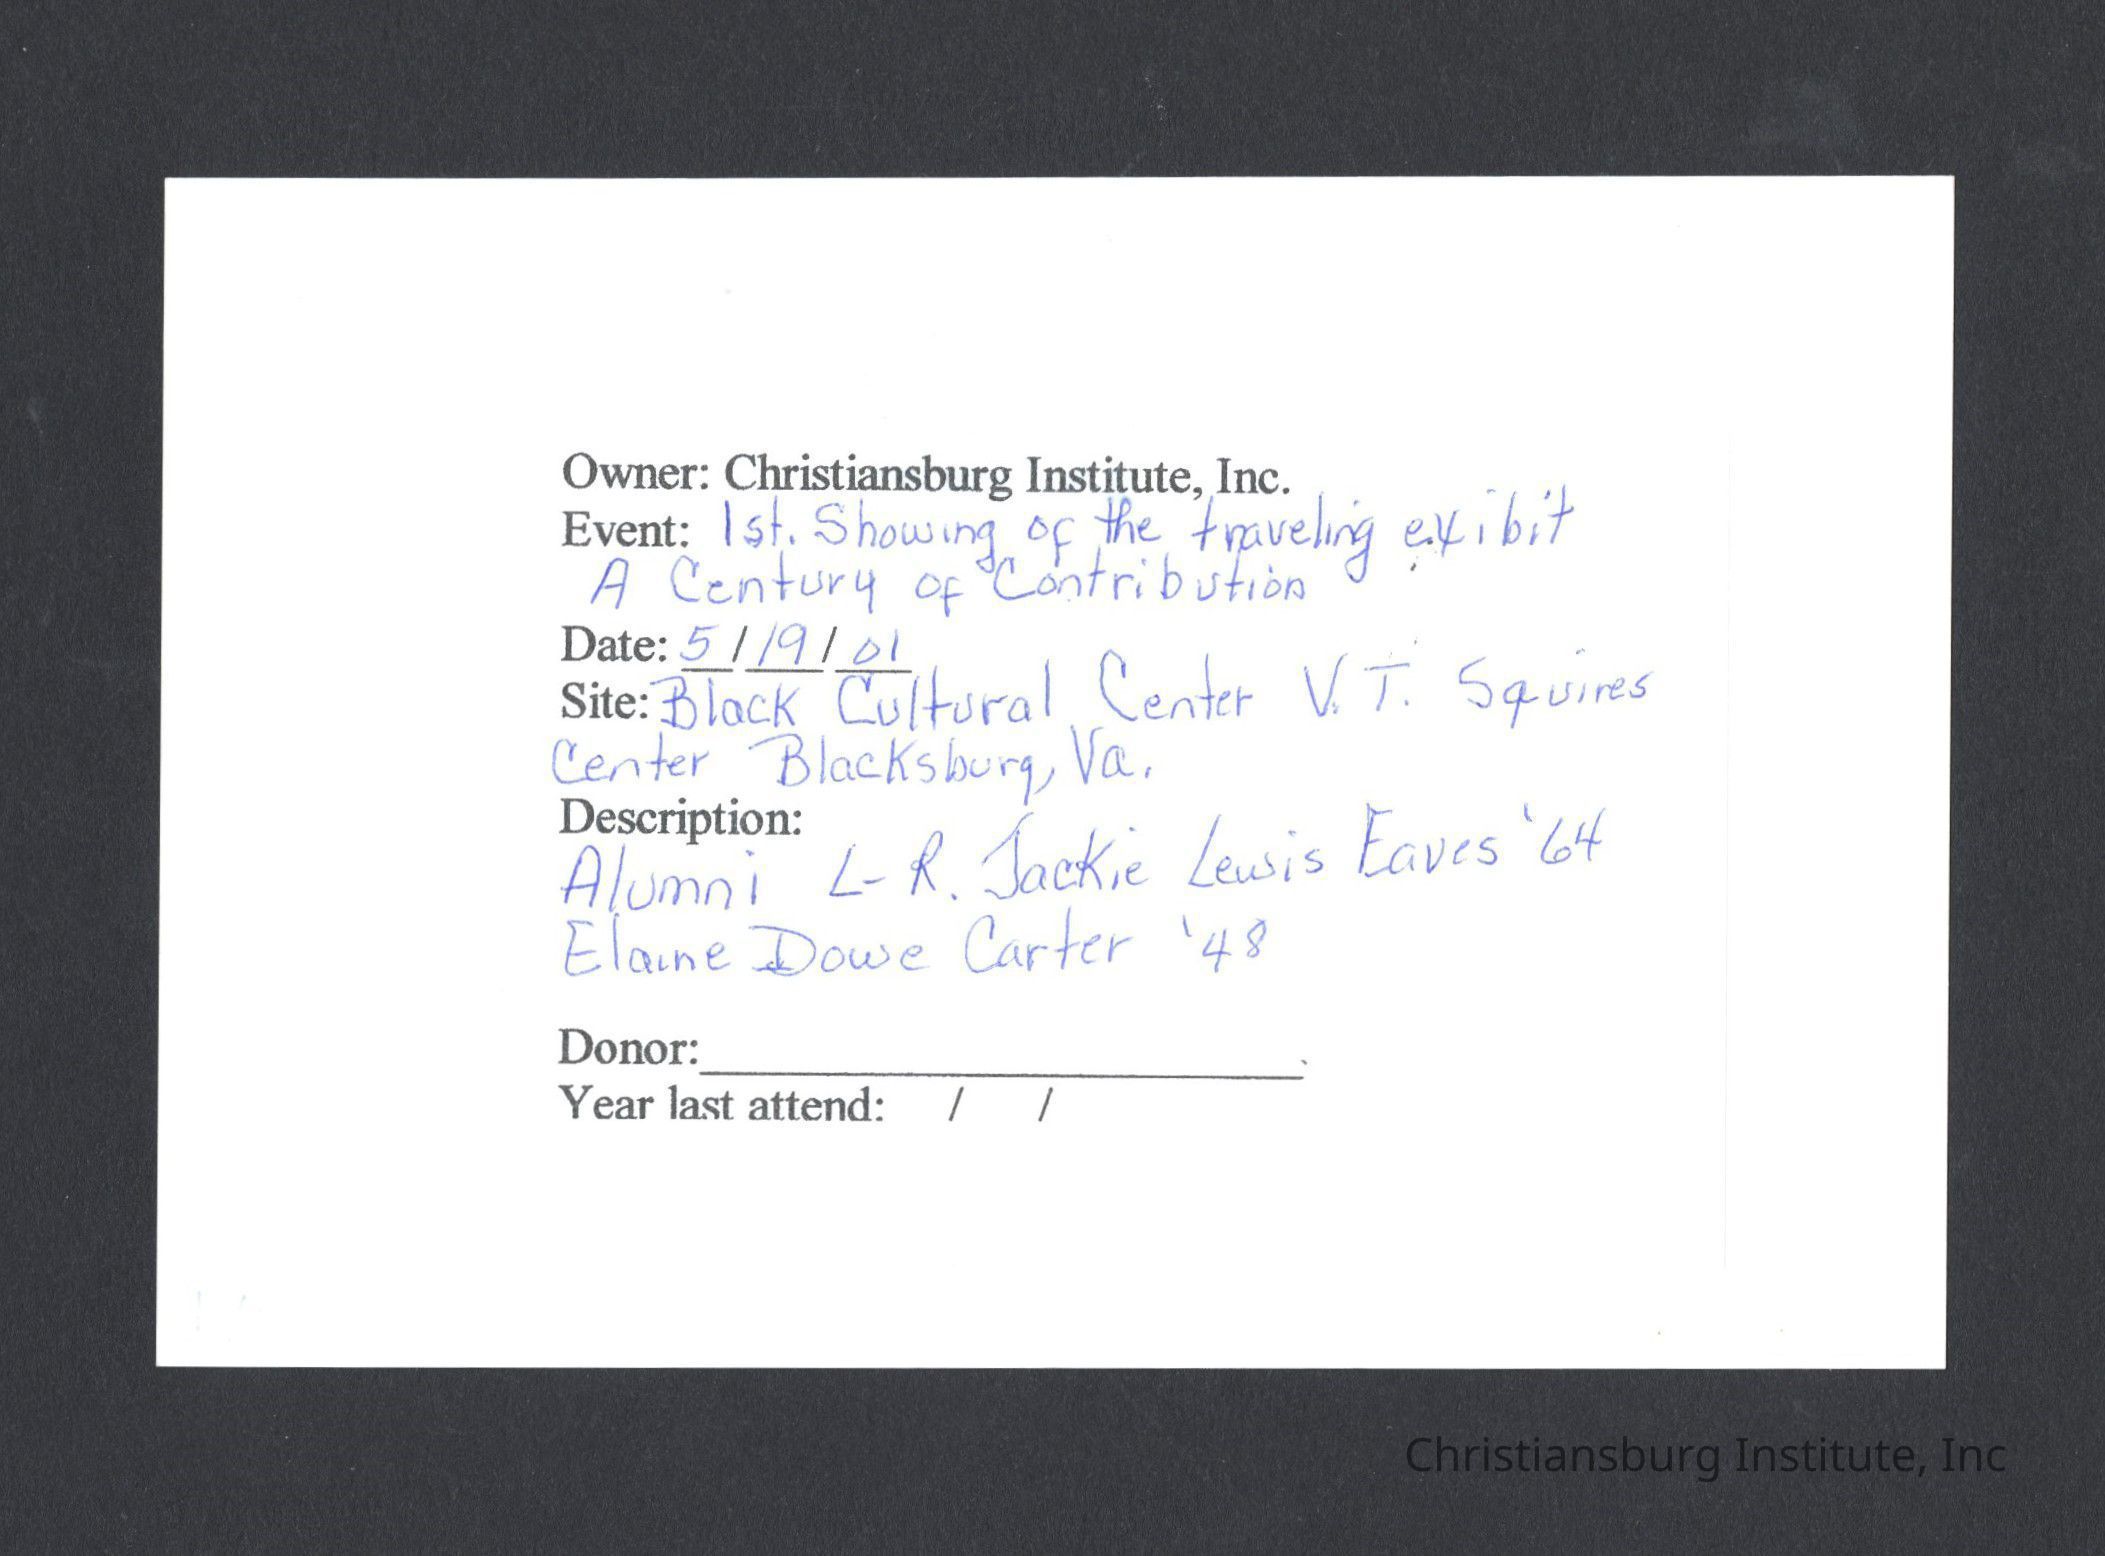 Owner: Christiansburg Institute, Inc.
Event: 1st. Showing of the traveling exibit
A Century of Contribution
Date: 5/19/01
Site: Black Cultural Center V.T. Squires
Center Blacksburg, Va.
Description:
Alumni L-R. Jackie Lewis Eaves '64
Elaine Dowe Carter '48
Donor:
Year last attend: / /
Christiansburg Institute, Inc